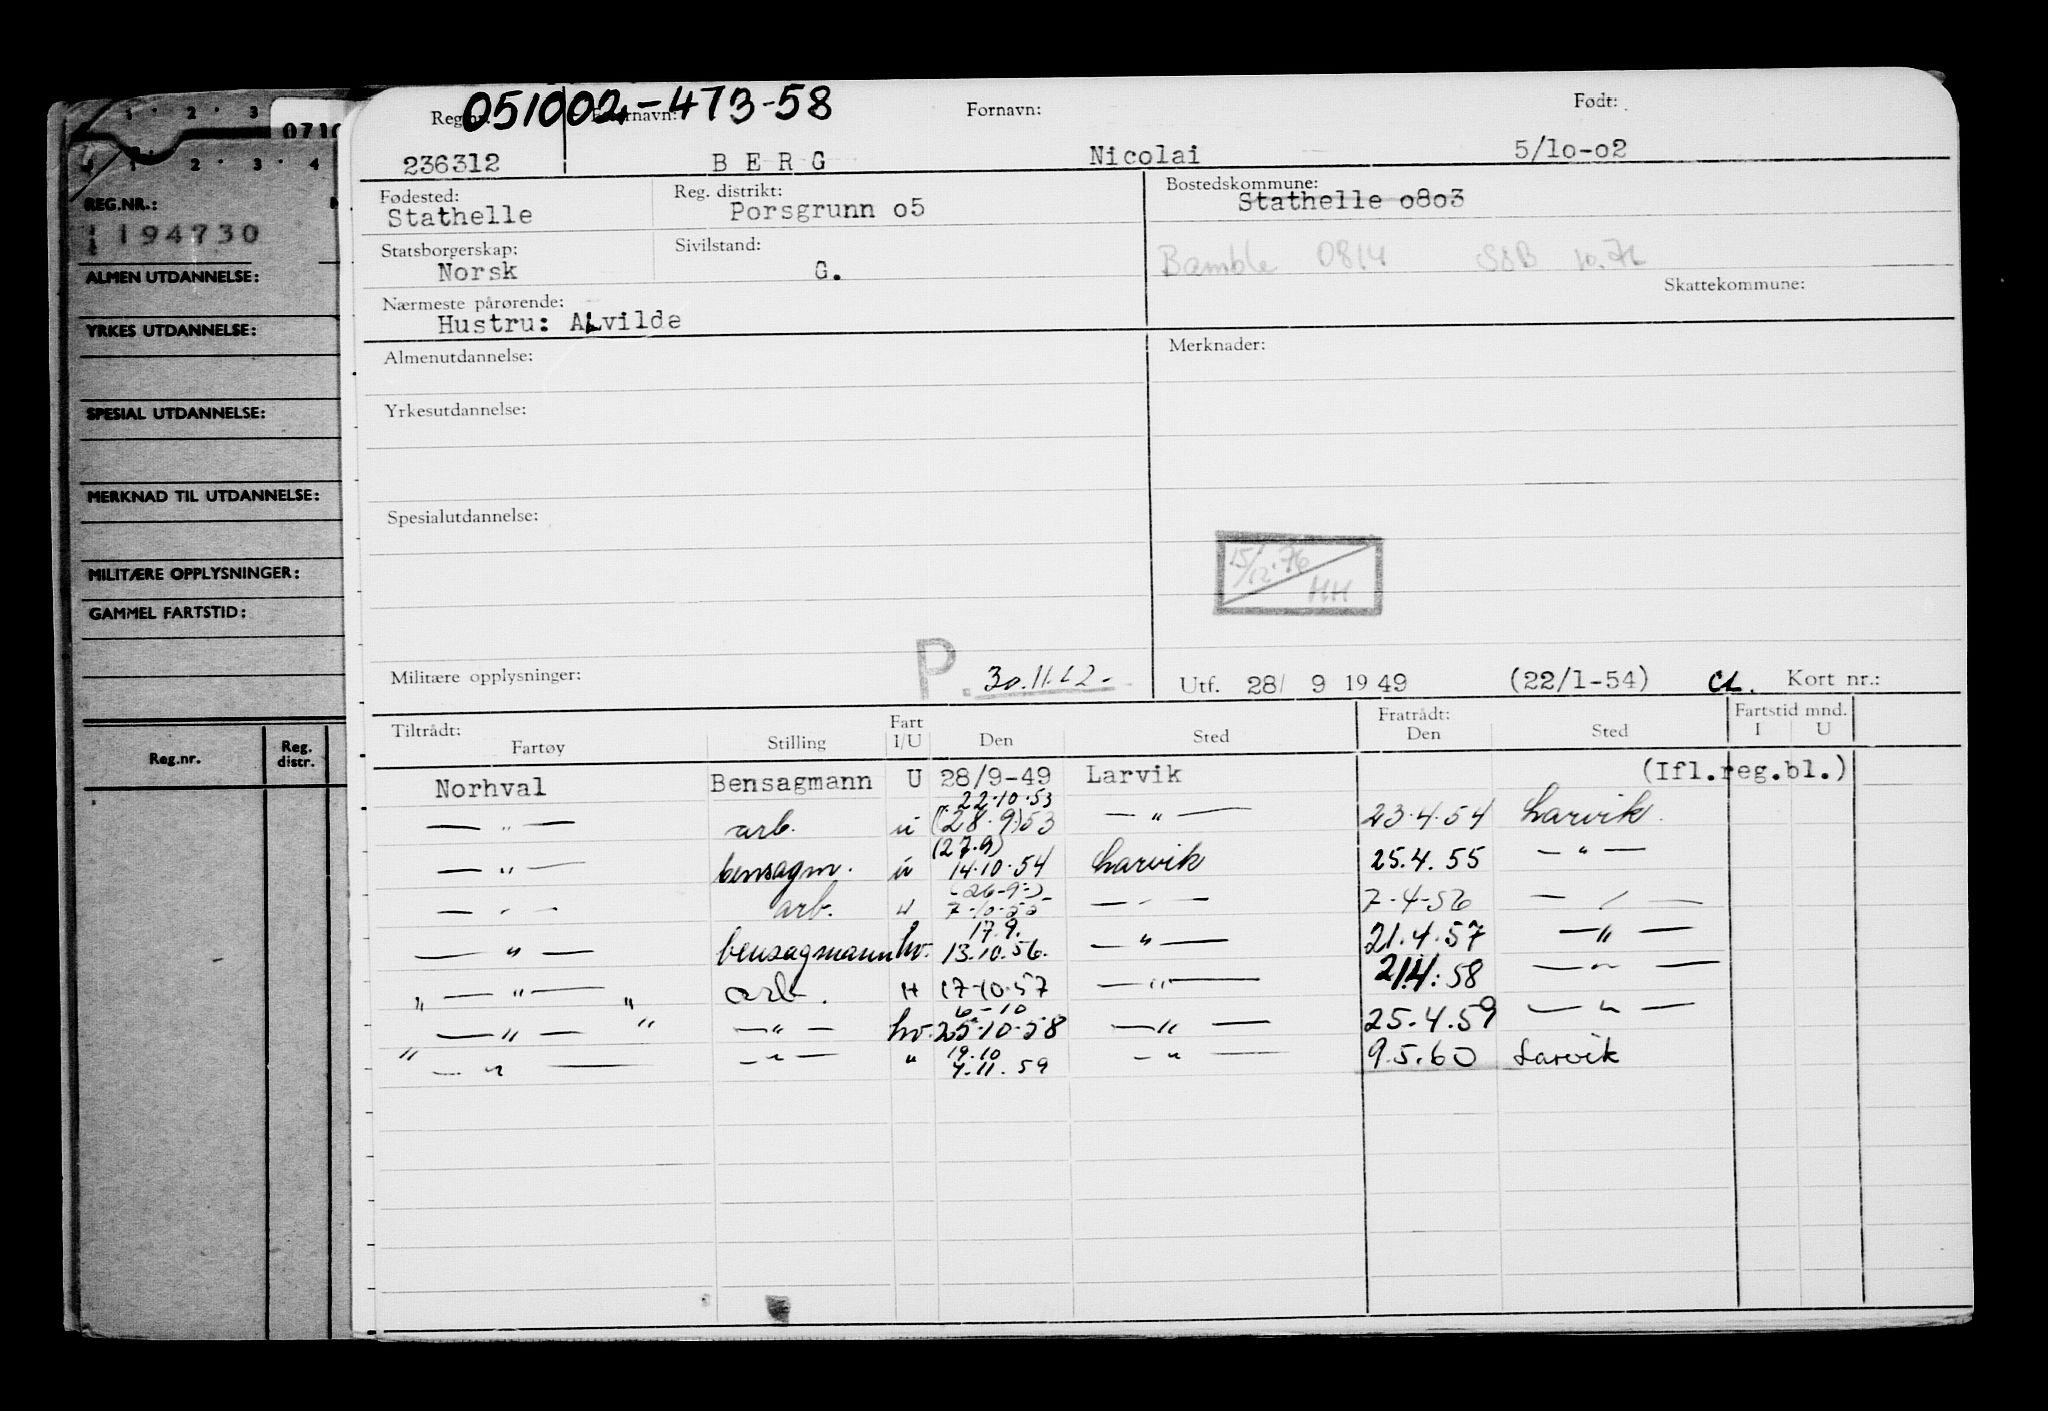 1 · 2 · 3
0710
1 · 2 · 3 · 4
REG.NR.:
194730
ALMEN UTDANNELSE:
YRKES UTDANNELSE:
SPESIAL UTDANNELSE:
MERKNAD TIL UTDANNELSE:
MILITÆRE OPPLYSNINGER:
GAMMEL FARTSTID:
Reg.nr. Reg. distr.
051002-473-58
Fornavn: Født:
236312 BERG Nicolai 5/10-02
Fødested: Reg. distrikt: Bostedskommune:
Stathelle Porsgrunn 05 Stathelle 0803
Statsborgerskap: Sivilstand:
Norsk G. Bamble 0814 SSB 10.76
Nærmeste pårørende: Skattekommune:
Hustru: Alvilde
Almenutdannelse: Merknader:
Yrkesutdannelse:
Spesialutdannelse:
15/12.76
HH
Militære opplysninger: P. 30.11.62. Utf. 28/ 9 1949 (22/1-54) Kort nr.:
Tiltrådt: Fart Fratrådt: Fartstid mnd.
Fartøy Stilling I/U Den Sted Den Sted I U
Norhval Bensagmann U 28/9-49 Larvik (Ifl.reg.bl.)
22.10.53
— " — arb. u (28.9.)53 — " — 23.4.54 Larvik.
(27.9)
— " — bensagm. u 14.10.54 Larvik 25.4.55 — " —
(26-9-)
— " — arb. u 7-10-55 — " — 7-4-56 — " —
17.9.
— " — bensagmann hv. 13.10.56. — " — 21.4.57 — " —
" — " — " arb. H 17-10-57 — " — 21.4.58 — " —
6-10
— " — " — " — hv. 25.10.58 — " — 25.4.59 — " —
19.10
" — " — — " — " 4.11.59 — " — 9.5.60 Larvik